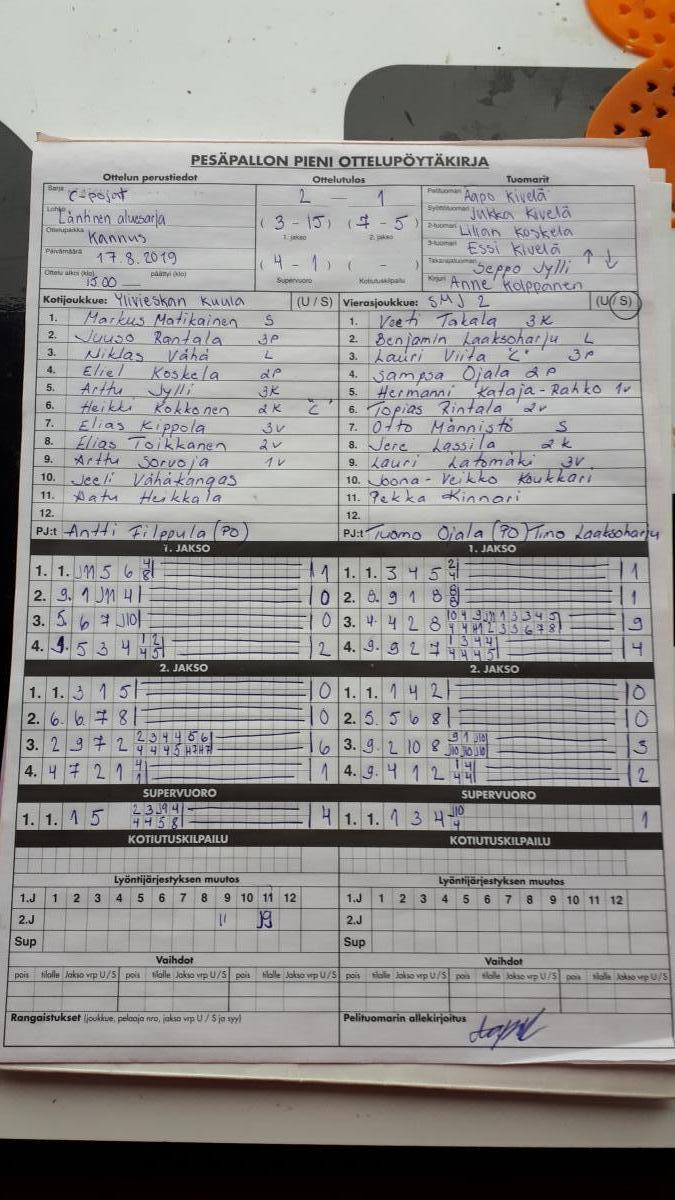 PESÄPALLON PIENI OTTELUPÖYTÄKIRJA
Ottelun perustiedot
Sarja C-pojat
Lohko Läntinen aluesarja
Ottelupaikka Kannus
Päivämäärä 17.8.2019
Ottelu alkoi (klo) 15.00 päättyi (klo)
Ottelutulos
2 – 1
(3 - 15) (7 - 5)
1. jakso 2. jakso
(4 - 1) ( - )
Supervuoro Kotiutuskilpailu
Tuomarit
Pelituomari Aapo Kivelä
Syöttötuomari Jukka Kivelä
2-tuomari Lilian Koskela
3-tuomari Essi Kivelä
Takarajatuomari Seppo Jylli ↑ ↓
Kirjuri Anne Kolppanen
Kotijoukkue: Ylivieskan Kuula (U / S)
1. Markus Matikainen S
2. Juuso Rantala 3P
3. Niklas Vähä L
4. Eliel Koskela 2P
5. Arttu Jylli 3K
6. Heikki Kokkonen 2K "C"
7. Elias Kippola 3v
8. Elias Toikkanen 2v
9. Arttu Sorvoja 1v
10. Jeeli Vähäkangas
11. Aatu Heikkala
12.
PJ:t Antti Filppula (PO)
Vierasjoukkue: SMJ 2 (U / S)
1. Veeti Takala 3K
2. Benjamin Laaksoharju L
3. Lauri Viita "C" 3P
4. Sampsa Ojala 2P
5. Hermanni Kataja-Rahko 1v
6. Topias Rintala 2v
7. Otto Männistö S
8. Jere Lassila 2K
9. Lauri Latomäki 3v
10. Joona-Veikko Koukkari
11. Pekka Kinnari
12.
PJ:t Tuomo Ojala (PO) Timo Laaksoharju
1. JAKSO
1. 1. J11 5 6 4 8 1
2. 9. 1 J11 4 0
3. 5. 6 7 J10 0
4. 1. 5 3 4 2
1. JAKSO
1. 1. 3 4 5 2 4 1
2. 8. 9 1 8 1
3. 4. 4 2 8 9
4. 9. 9 2 7 4
2. JAKSO
1. 1. 3 1 5 0
2. 6. 6 7 8 0
3. 2 9 7 2 6
4. 4 7 2 1 1
2. JAKSO
1. 1. 1 4 2 0
2. 5. 5 6 8 0
3. 9. 2 10 8 3
4. 9. 4 1 2 2
SUPERVUORO
1. 1. 1 5 4
SUPERVUORO
1. 1. 1 3 4 J10 4 1
KOTIUTUSKILPAILU
KOTIUTUSKILPAILU
Lyöntijärjestyksen muutos
1.J 1 2 3 4 5 6 7 8 9 10 11 12
2.J 11 J9
Sup
Lyöntijärjestyksen muutos
1.J 1 2 3 4 5 6 7 8 9 10 11 12
2.J
Sup
Vaihdot
pois tilalle Jakso vrp U / S pois tilalle Jakso vrp U / S pois tilalle Jakso vrp U / S
Vaihdot
pois tilalle Jakso vrp U / S pois tilalle Jakso vrp U / S pois tilalle Jakso vrp U / S
Rangaistukset (joukkue, pelaaja nro, jakso vrp U / S ja syy)
Pelituomarin allekirjoitus